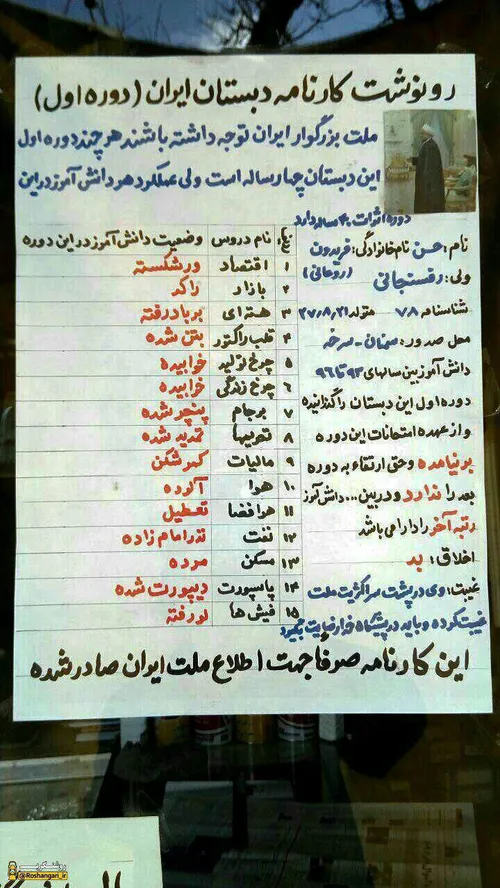 رونوشت کارنامه دبستان ایران (دوره اول)
ملت بزرگوار ایران توجه داشته باشند هر چند دوره اول
این دبستان چهار ساله است ولی عملکرد هر دانش آموز در این
دوره اثرات ۴۰ ساله دارد
نام: حسن نام خانوادگی: فریدون
(روحانی)
ولی: رفسنجانی
شناسنامه ۷۸ متولد ۲۷،۸،۲۱
محل صدور: سمنان - سرخه
دانش آموز بین سالهای ۹۲ تا ۹۶
دوره اول این دبستان را گذرانیده
و از عهده امتحانات این دوره
بر نیامده و حق ارتقاء به دوره
بعد را ندارد و در بین ... دانش آموز
رتبه آخر را دارا می باشد
اخلاق: بد
غیبت: وی در پشت سر اکثریت ملت
غیبت کرده و باید در پیشگاه خدا رضایت بگیرد
نام دروس وضعیت دانش آموز در این دوره
۱ اقتصاد ورشکسته
۲ بازار راکد
۳ هسته ای بر باد رفته
۴ قلب راکتور بتن شده
۵ چرخ تولید خوابیده
۶ چرخ زندگی خوابیده
۷ برجام پنچر شده
۸ تحریمها تمدید شده
۹ مالیات کمر شکن
۱۰ هوا آلوده
۱۱ هوا فضا تعطیل
۱۲ نفت نذر امام زاده
۱۳ مسکن مرده
۱۴ پاسپورت دیپورت شده
۱۵ فیش ها لو رفته
این کارنامه صرفا جهت اطلاع ملت ایران صادر شده
روشنگری
@Roshangari_ir